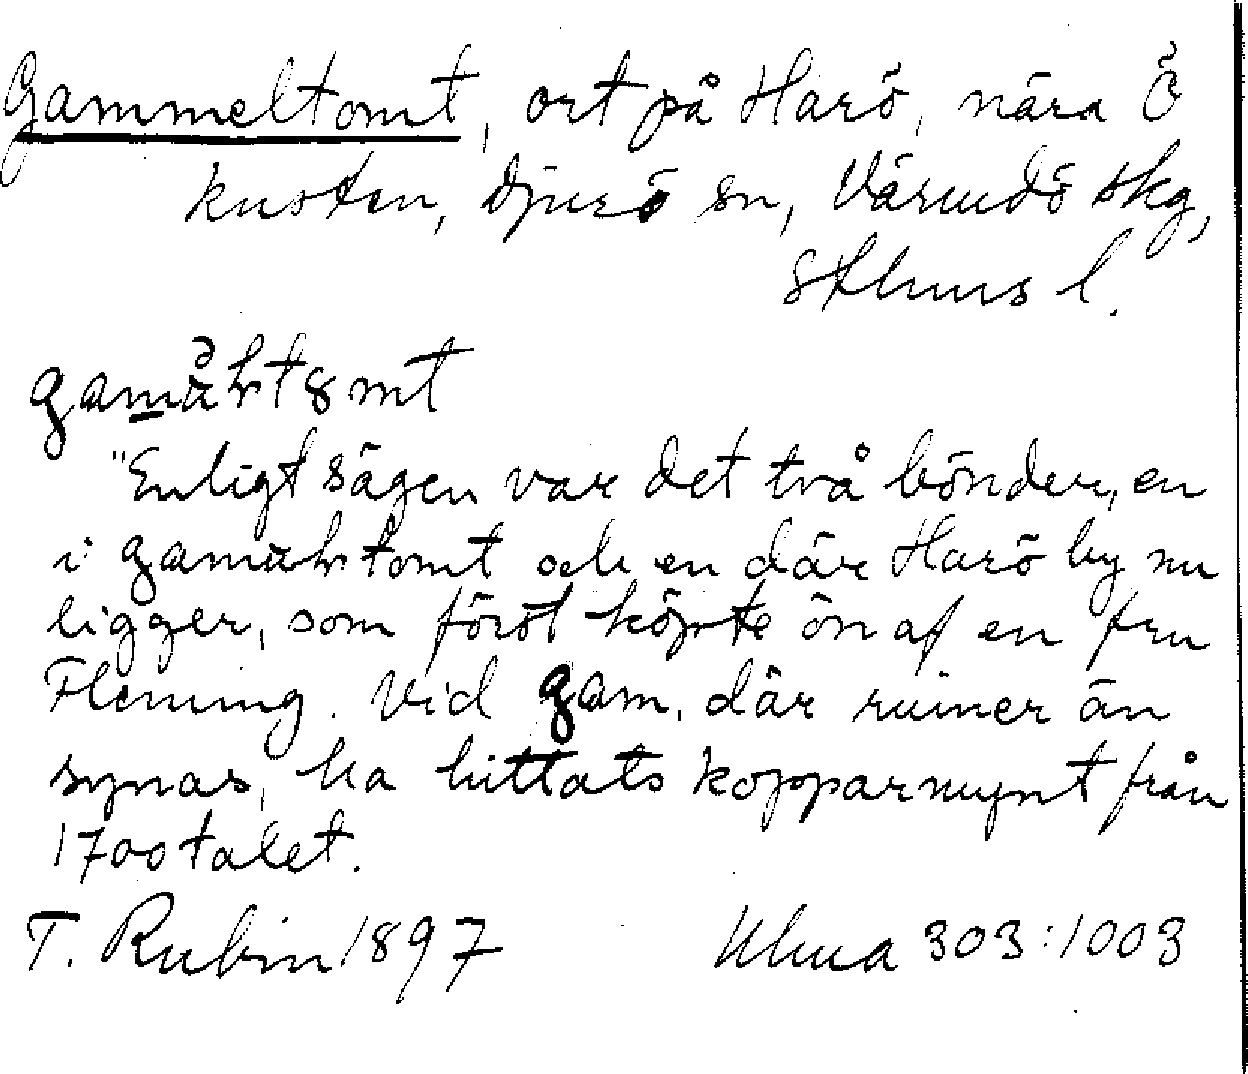 Gammeltomt, ort på Harö, nära Ö
kusten, Djurö sn, Värmdö skg,
Sthlms l.
"Enligt sägen var det två bönder, en
i och en där Harö by nu
ligger, som först köpte ön af en fru
Fleming. Vid gam. där ruiner än
synas, ha hittats kopparmynt från
1700talet.
T. Rubin 1897 Ulma 303:1003